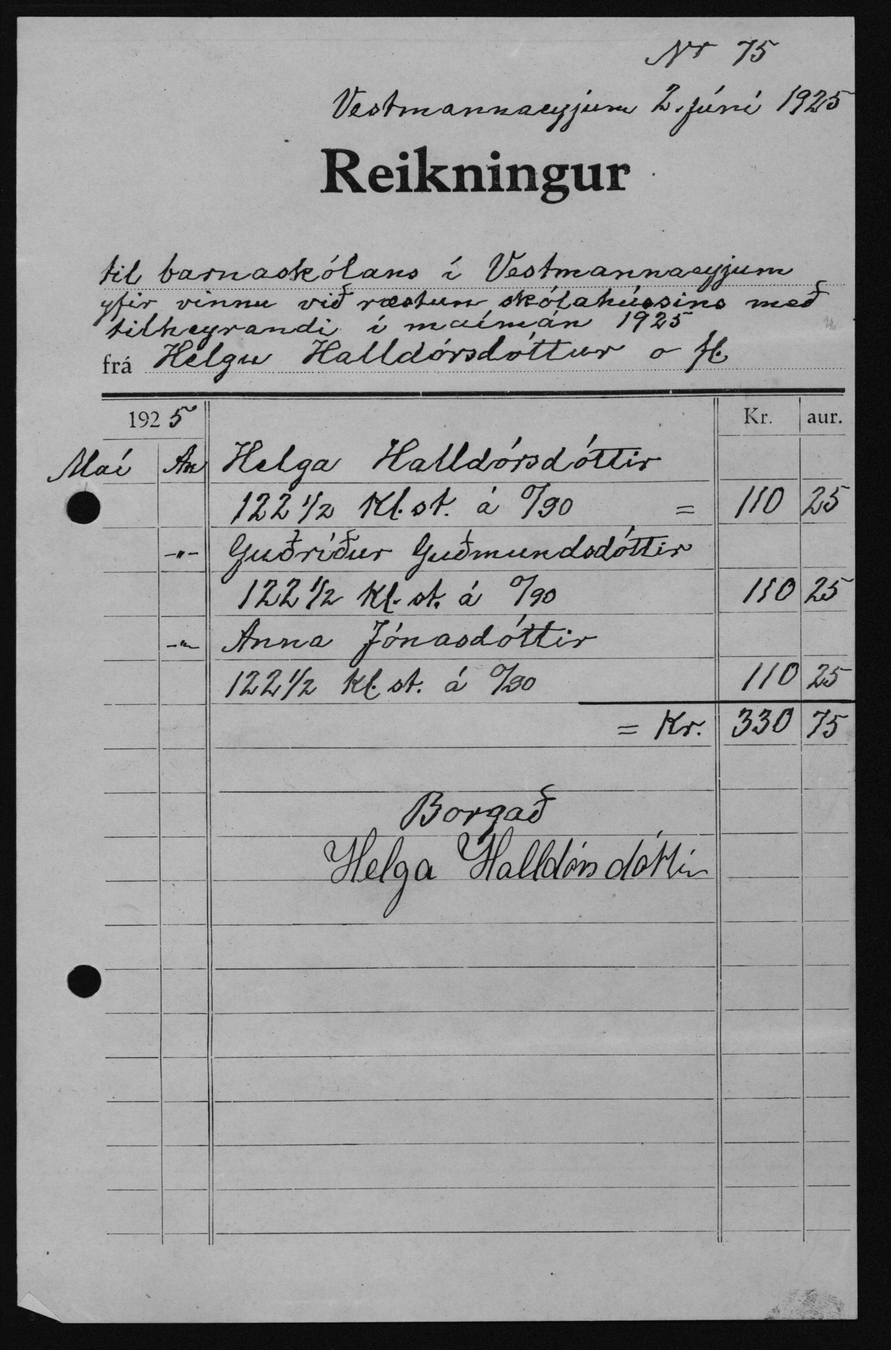 Nr 75
Vestmannaeyjum 2. júní 1925
Reikningur
til barnaskólans í Vestmannaeyjum
yfir vinnu við ræstun skólahússins með
tilheyrandi í maímán 1925
frá Helgu Halldórsdóttur o fl.
1925 Kr. aur.
Maí An Helga Halldórsdóttir
122 1/2 Kl.st. á 0/90 = 110 25
-"- Guðríður Guðmundsdóttir
122 1/2 Kl.st. á 0/90 110 25
-"- Anna Jónasdóttir
122 1/2 Kl.st. á 0/90 110 25
= Kr. 330 75
Borgað
Helga Halldórsdóttir